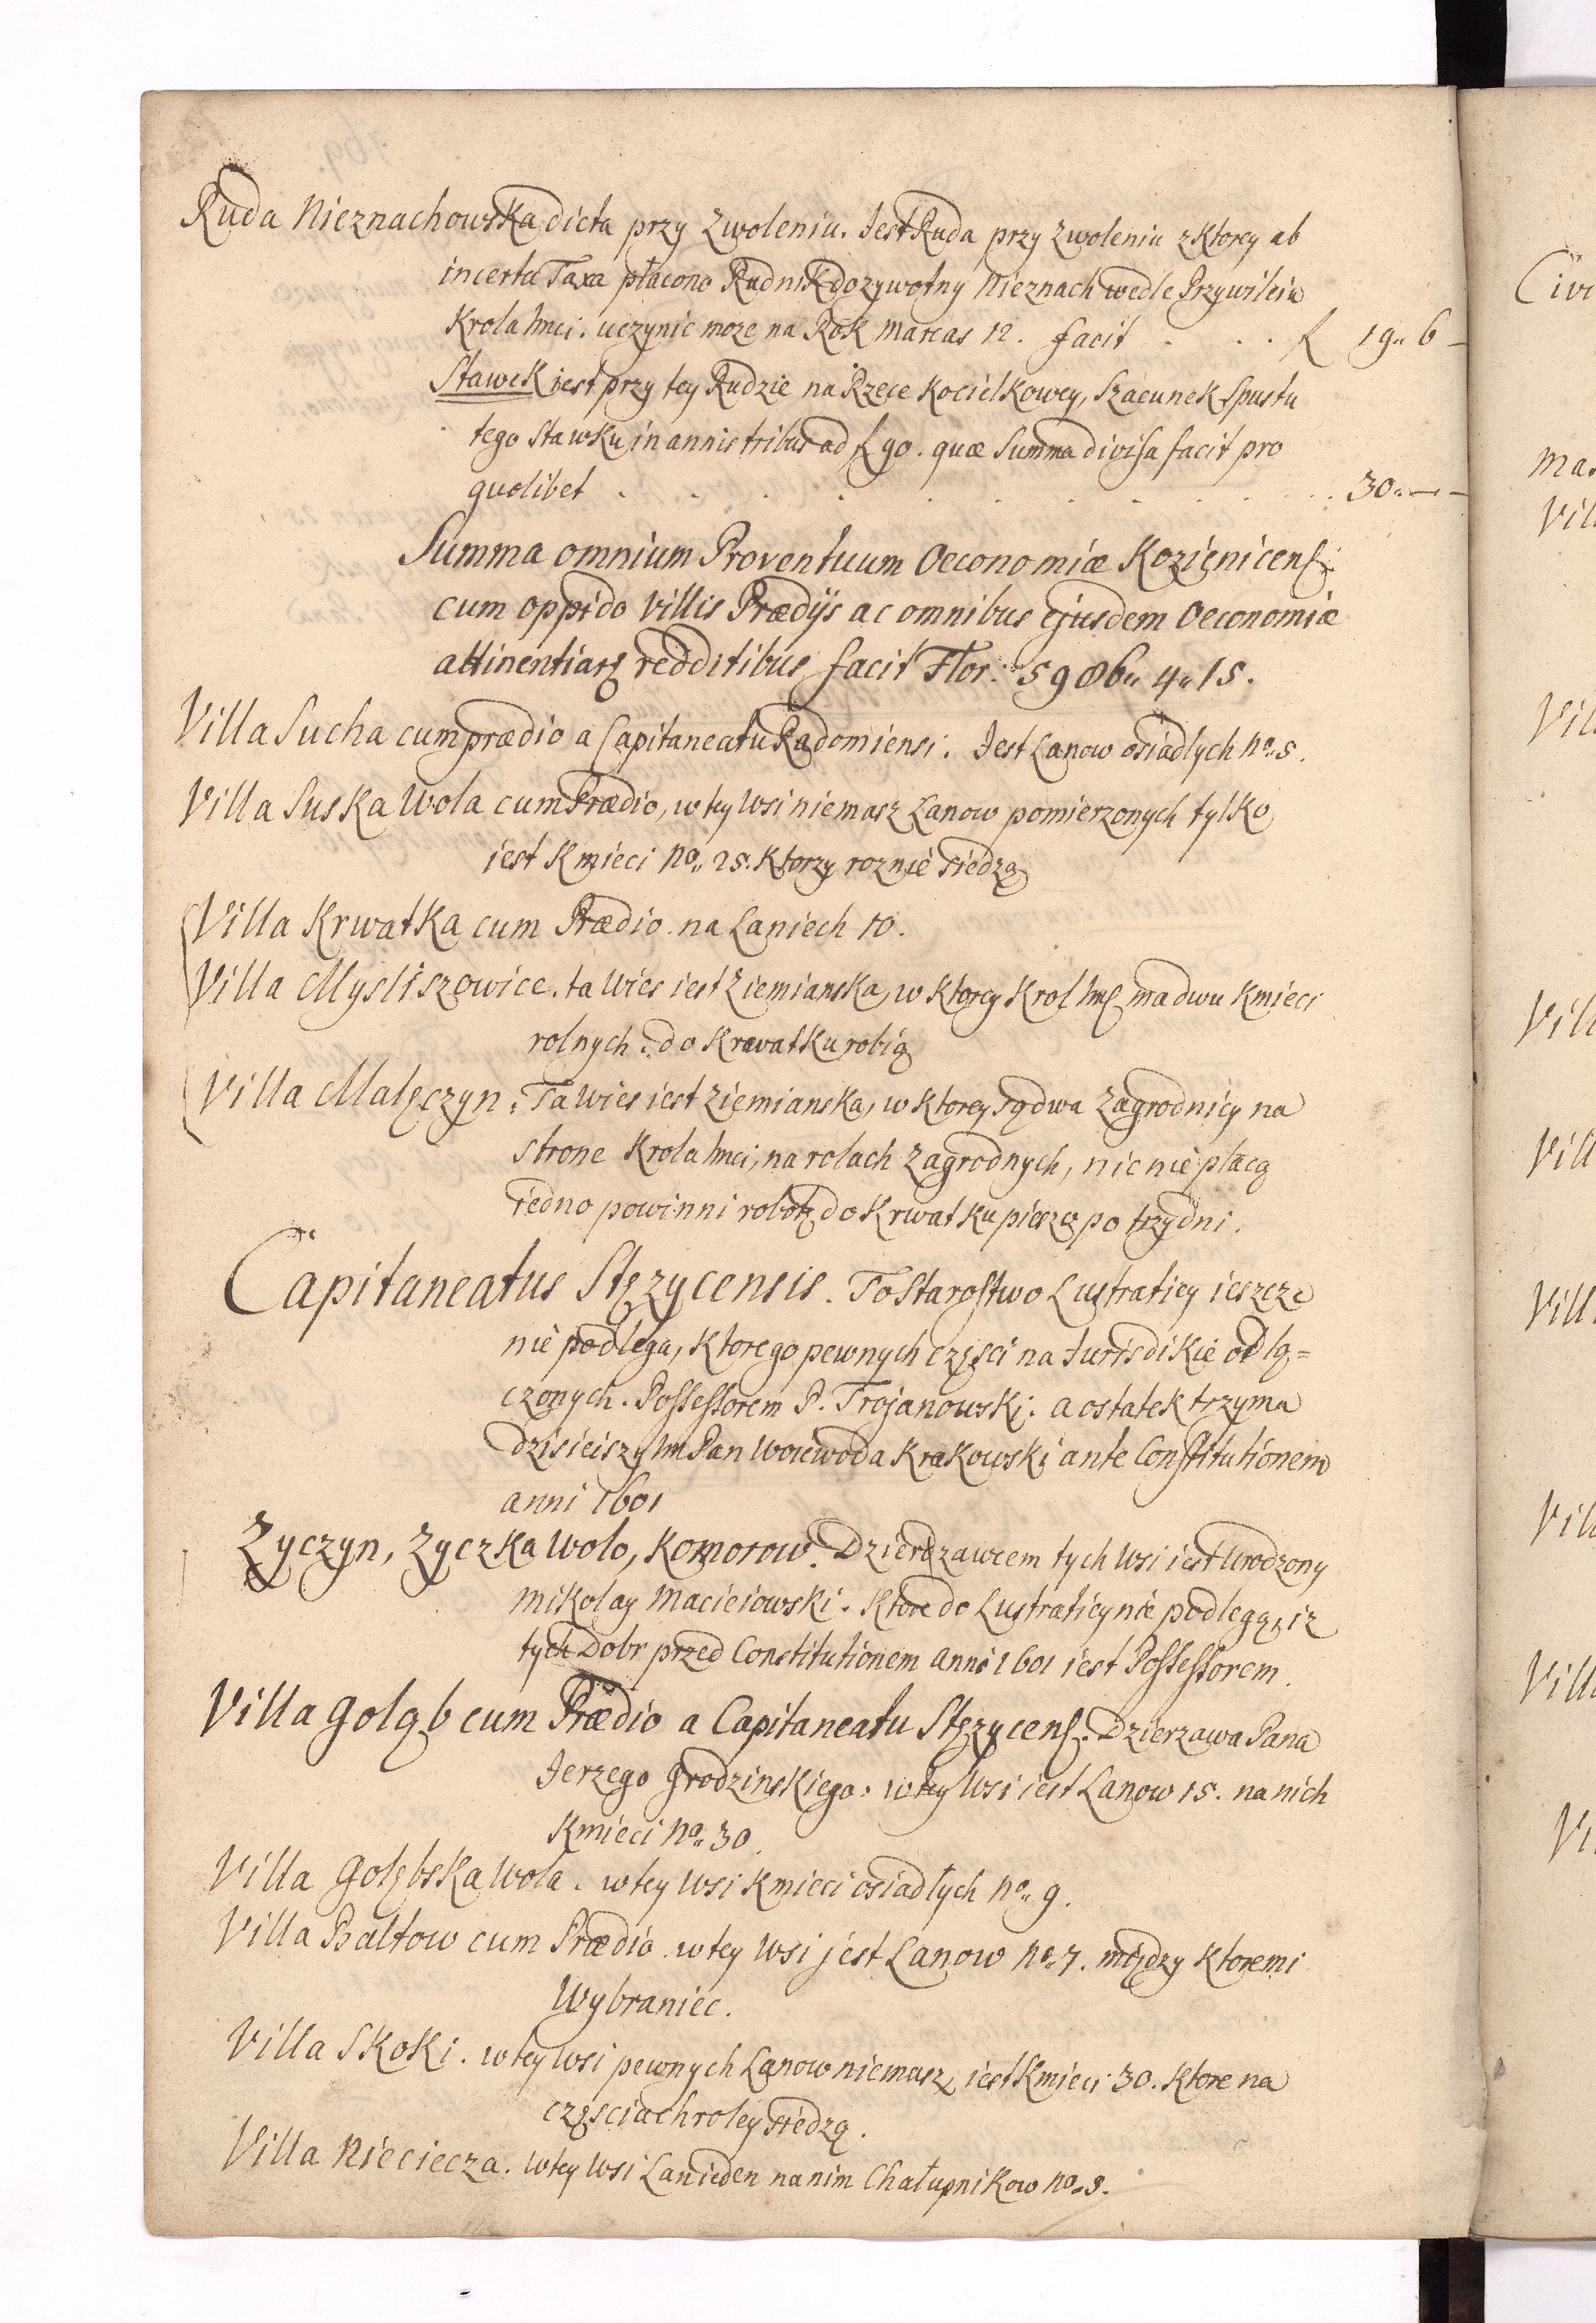 Ruda Nieznachowska dicta przy Zwoleniu. Jest Ruda przy Zwoleniu z Ktorey ab
incerta Taxa płacono Rudnik dozywotny Nieznach wedle Przywileiu
Krola Imci. uczynic moze na Rok marcas 12. facit . . . f 19„ 6 –
Stawek iest przy tey Rudzie na Rzece Kociełkowey, Szacunek Spustu
tego Stawku in annis tribus ad f 90. quæ Summa divisa facit pro
quolibet . . . . . . . . . . 30„ — –
Summa omnium Proventuum Oeconomiæ Kozienicens:
cum oppido Villis Prædijs ac omnibus ejusdem Oeconomiæ
attinentiarz redditibus facit Flor: 5986„ 4„ 15.
Villa Sucha cum prædio a Capitaneatu Radomiensi. Jest Lanow osiadlych No„ 5.
Villa Suska Wola cum Prædio, w tey Wsi niemasz Lanow pomierzonych tylko
iest Kmieci No„ 25. Ktorzy roznie siedzą
Villa Krwatka cum Prædio na Laniech 10.
Villa Mysliszowice. ta Wies iest Ziemianska, w Ktorey Krol Imc ma dwu Kmieci
rolnych. do Krwatku robią
Villa Malęczyn. Ta Wies iest Ziemianska, w Ktorey są dwa Zagrodnicy na
strone Krola Imci, na rolach Zagrodnych, nic nie płacą
iedno powinni robotę do Krwatku pieszą po trzy dni.
Capitaneatus Stęzycensis. To Starostwo Lustraticy ieszcze
nie podlega, Ktorego pewnych części na Jurisdikie odlą=
czonych. Possessorem P. Trojanowski. a ostatek trzyma
Dzisieiszy Im Pan Woiewoda Krakowski ante Constitutionem
anni 1601
Zyczyn, Zyczka Wolo, Komorow. Dzierdzawcem tych Wsi iest Urodzony
Mikolay Macieiowski. Ktore do Lustraticy nie podlegą, iz
tych Dobr przed Constitutionem anni 1601 iest Possessorem.
Villa Goląb cum Prædio a Capitaneatu Stęzycens. Dzierzawa Pana
Jerzego Grodzinskiego. w tey Wsi iest Lanow 15. na nich
Kmieci No„ 30.
Villa Golębska Wola. w tey Wsi Kmieci osiadłych No„ 9.
Villa Baltow cum Prædio. w tey Wsi jest Lanow No„ 7. między Ktoremi
Wybraniec.
Villa Skoki. w tey Wsi pewnych Lanow niemasz, iest Kmieci 30. Ktore na
częsciach roley siedzą.
Villa Nieciecza. W tey Wsi Lan ieden na nim Chałupnikow No„